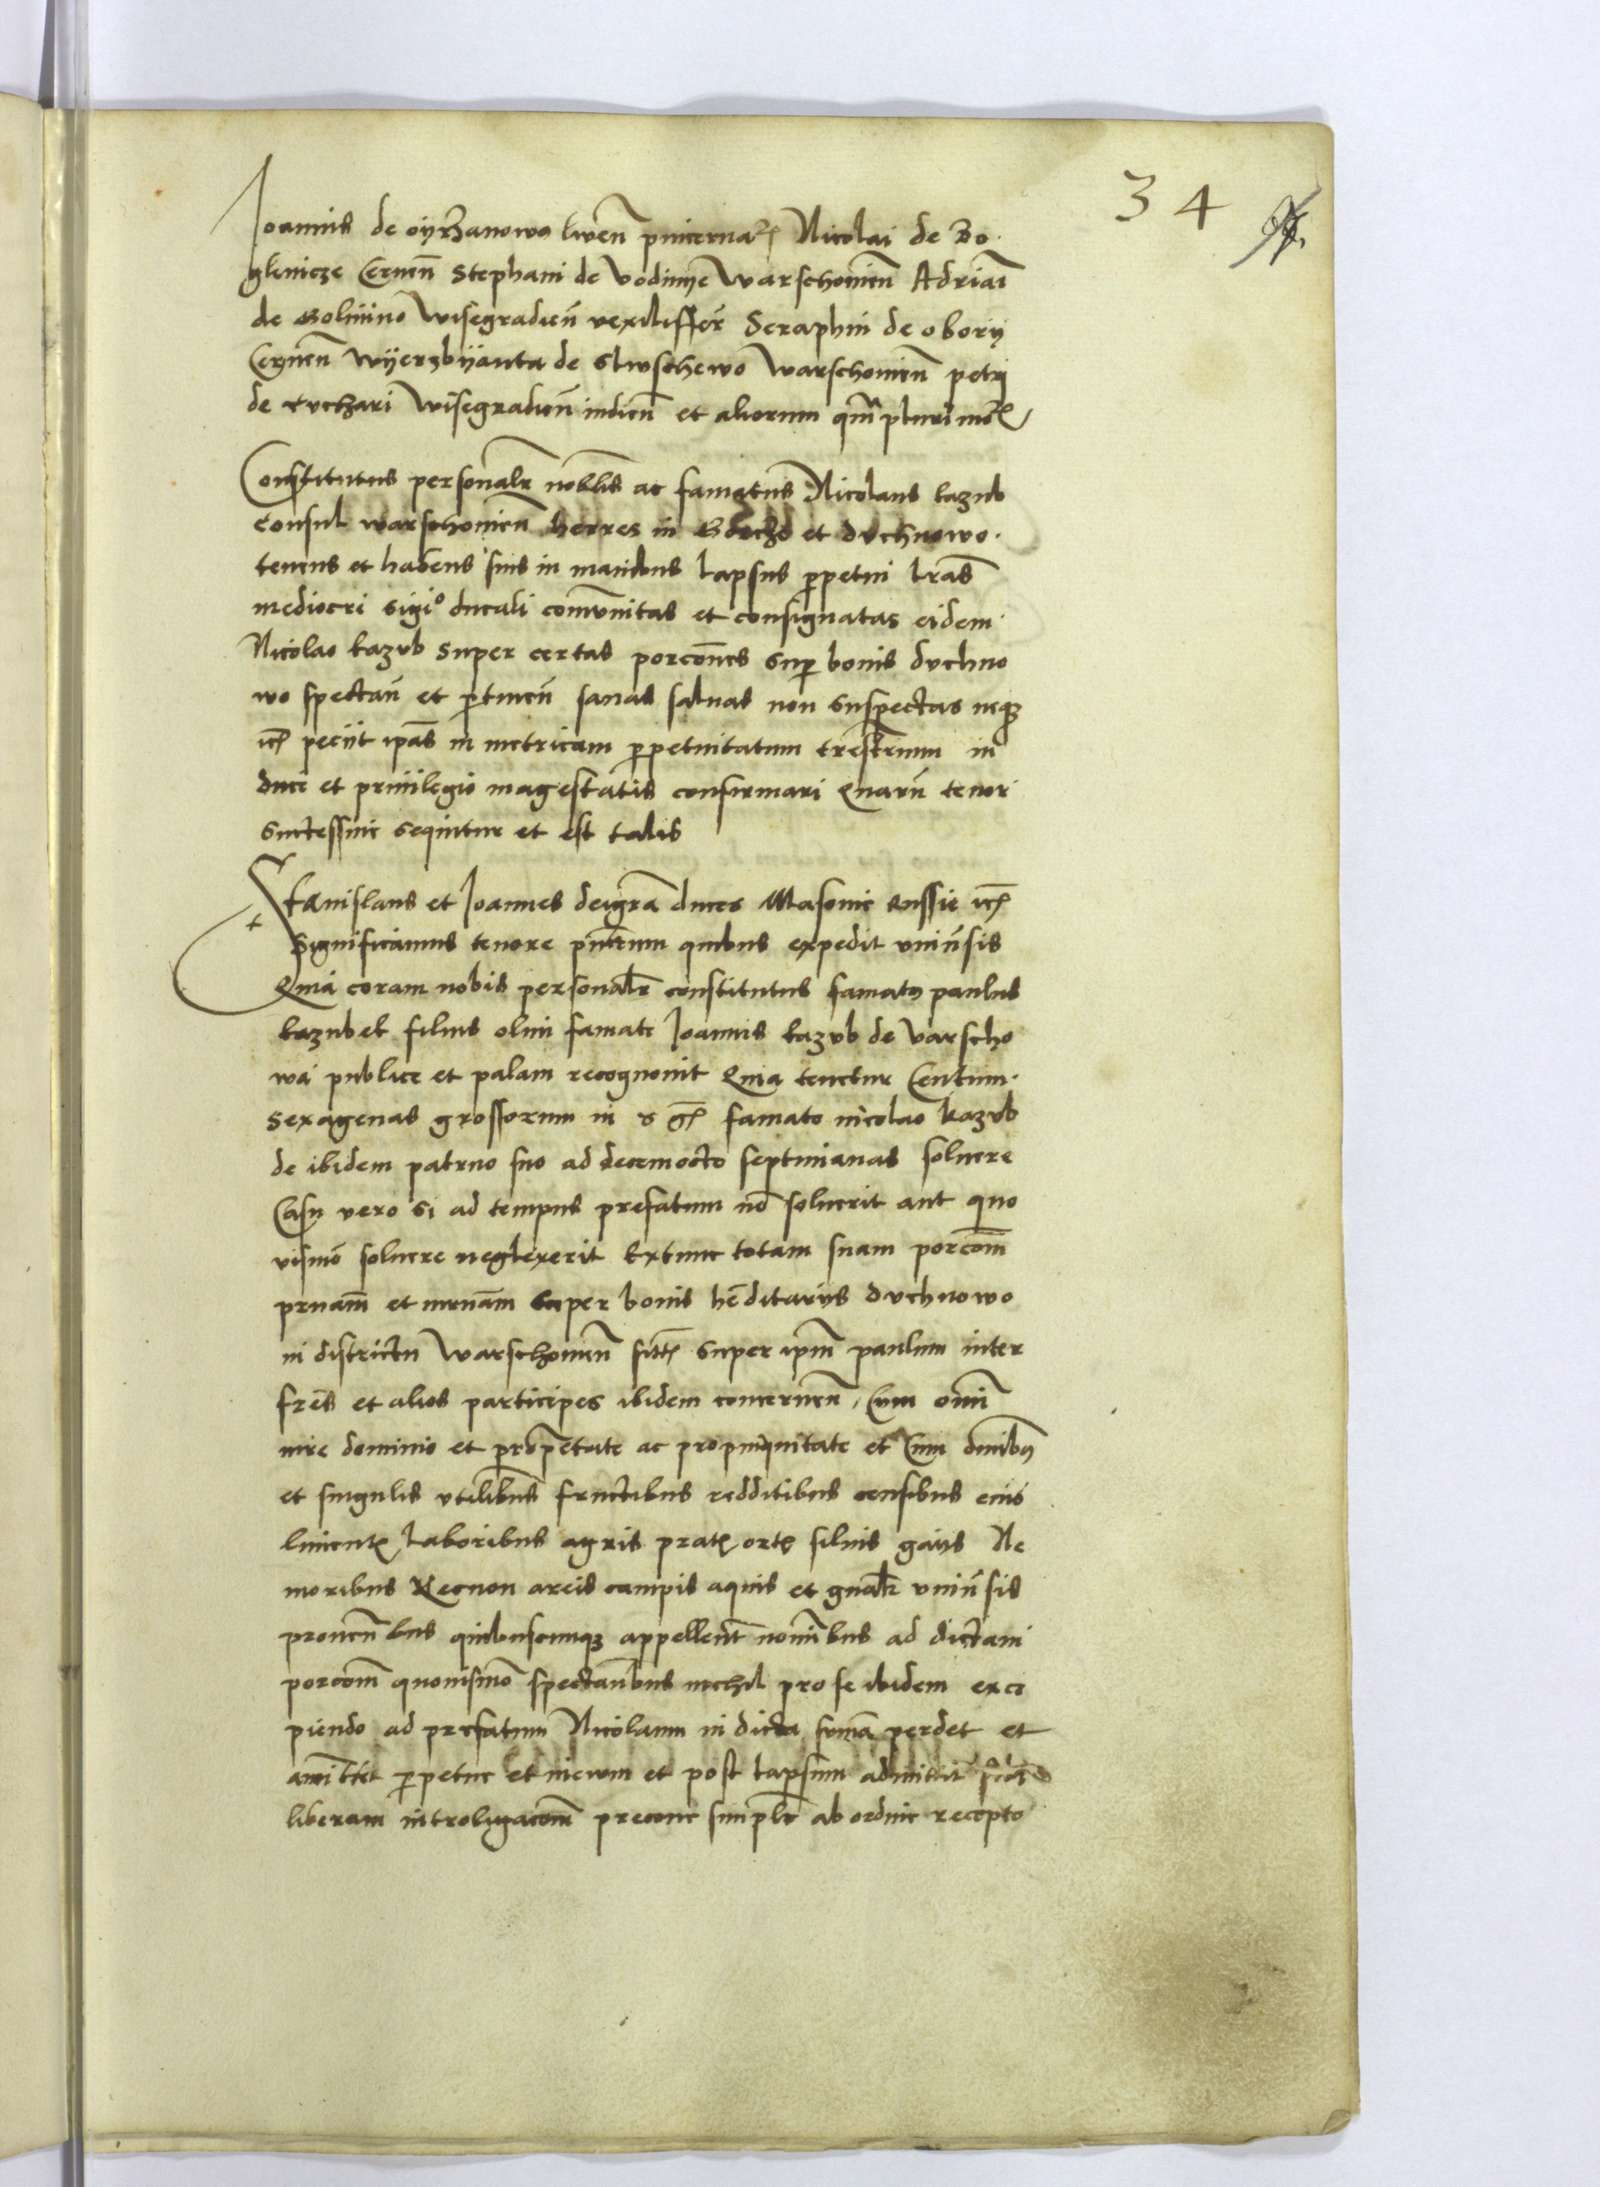 34
Joannis de oyrzanowo liven̄ pincernar̄ Nicolai de Bo
glevicze Cernen̄ Stephani de Vodinye Warschovien̄ Adriani
de Golmino Wisegradien̄ vexilifferor̄ Seraphin de obory
Cernen̄ Wyerzbyanta de Slwschewo Warschovien̄ petri
de Cvchari Wisegradien̄ iudicū et aliorum qm̄ plurimor̄
Constitutus personalr̄ nobilis ac famatus Nicolaus kazub
Consul warschovien̄ heres in et dvchnowo
tenens et habens suis in manibus lapsus ꝑpetui lr̄as
mediocri sigio ducali com̄unitas et consignatas eidem
Nicolao kazvb super certas porcōnes sup bonis dvchno
wo spectan̄ et ꝑtinen̄ sanas saluas non suspectas neqꝫ
ic̄ peciit ip̄as in metricam ꝑpetuitatum tr̄estrium in
duci et priuilegio magestatis confirmari Quarū tenor
successiue sequitur et est talis
Stanislaus et Joannes dei gr̄a duces Masouie Russie ic̄
Significamus tenore pn̄tium quibus expedit vniūsis
Quia coram nobis personalr̄ constitutus famatꝰ paulus
kazubek filius olim famati Joannis kazvb de Varscho
wa publice et palam recognouit Quia tenetur Centum
sexagenas grossorum in famato nicolao kazvb
de ibidem patruo suo ad decemocto septimanas soluere
Casu vero si ad tempus prefatum nō soluerit aut quo
uismō soluere neglexerit Extunc totam suam porcōm
pr̄nam et mr̄nam super bonis hēditarijs dvchnowo
in districtu Warschovien̄ sitt̄ super ipm̄ paulum inter
fr̄es et alios participes ibidem concernen̄ Cum omī
iure dominio et proprietate ac propinquitate et Cum om̄ibꝰ
et singulis vtilibus fructibus redditibus censibus emo
limentꝭ laboribus agris pratꝭ ortꝭ siluis gaijs Ne
moribus Necnon areis campis aquis et gn̄alr̄ vniūsis
prouen̄bus quibuscumqꝫ appellent̄ nomībus ad dictam
porcōm quouismō spectan̄bus nichil pro se ibidem exci
piendo ad prefatum Nicolaum in dicta sum̄a perdet et
amittet ꝑpetue et in ewm et post lapsum admittit
liberam introligacōm precone simplr̄ ab ordine recepto